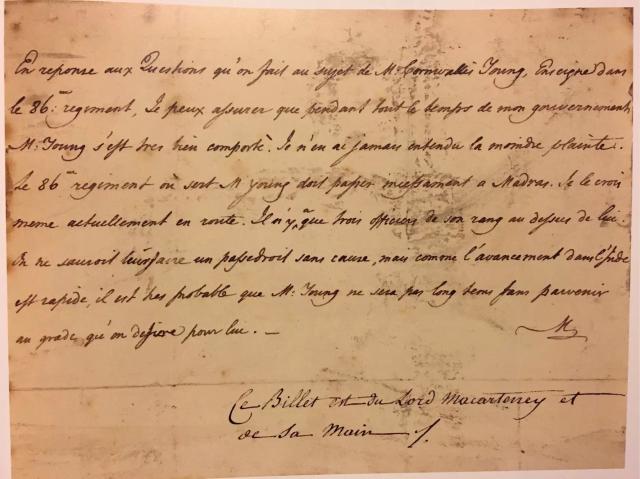 En reponse aux Questions qu'on fait au sujet de Mr. Cornwallis Young, Enseigne dans
le 86me. regiment, Je peux assurer que pendant tout le temps de mon gouvernement
Mr. Young s'est tres bien comporté. Je n'en ai jamais entendu la moindre plainte.
Le 86me regiment où sert Mr young doit passer incessament a Madras. Je le crois
meme actuellement en route. Il n'y a que trois officiers de son rang au dessus de lui
On ne sauroit leur faire un passedroit sans cause, mais comme l'avancement dans l'Inde
est rapide, il est tres probable que Mr. Young ne sera pas long tems sans parvenir
au grade qu'on desire pour lui. —
Ce Billet est du Lord Macartney et
de sa Main